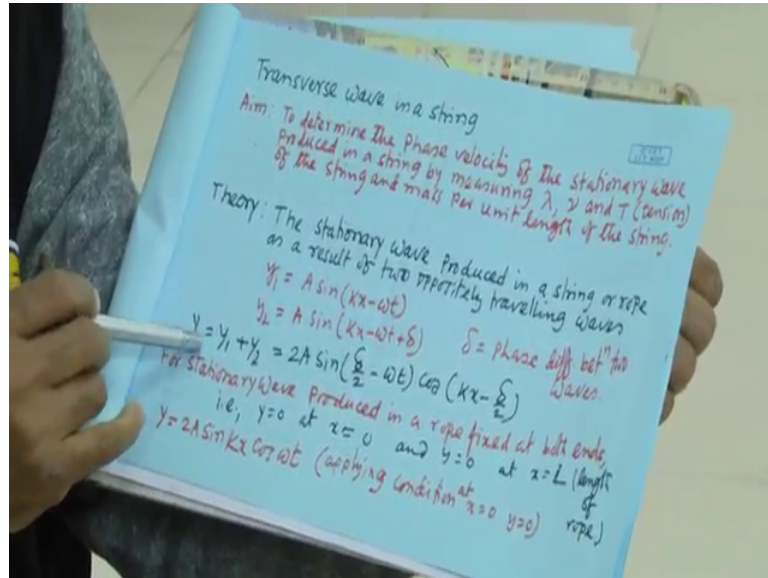 Transverse wave in a string
Aim: To determine the Phase velocity of the stationary wave
produced in a string by measuring λ, ν and T (tension)
of the string and mass per unit length of the string.
Theory: The stationary wave produced in a string or rope
as a result of two oppositely travelling waves
y₁ = A sin(kx-ωt)
y₂ = A sin(kx-ωt+δ) δ = phase diff betⁿ two waves.
y = y₁ + y₂ = 2A sin(δ/2 - ωt) cos(kx - δ/2)
For stationary wave produced in a rope fixed at both ends,
i.e., y=0 at x=0 and y=0 at x=L (length of rope)
y=2A sin kx cos ωt (applying condition at x=0 y=0)